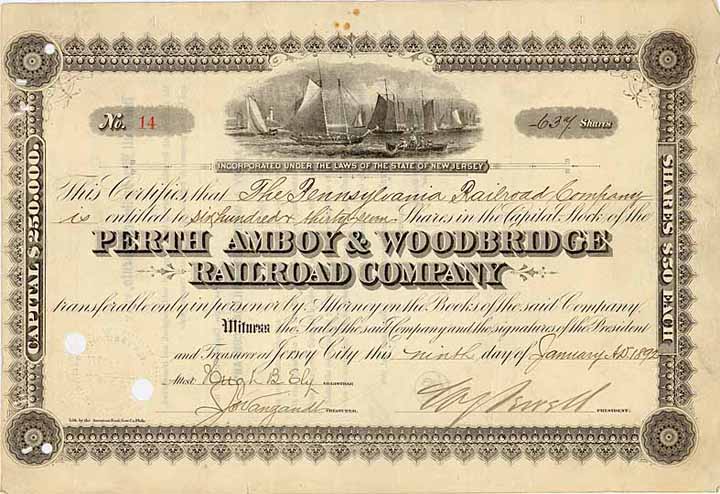 No. 14
637 Shares
INCORPORATED UNDER THE LAWS OF THE STATE OF NEW JERSEY
CAPITAL $250,000.
SHARES $50 EACH
This Certifies that The Pennsylvania Railroad Company
is entitled to six hundred & thirty seven Shares in the Capital Stock of the
PERTH AMBOY & WOODBRIDGE
RAILROAD COMPANY
transferable only in person or by Attorney on the Books of the said Company
Witness the Seal of the said Company and the signatures of the President
and Treasurer at Jersey City this ninth day of January A.D. 189
Attest Hugh B. Ely REGISTRAR
TREASURER.
PRESIDENT.
Lith. by the American Bank Note Co. Phila.